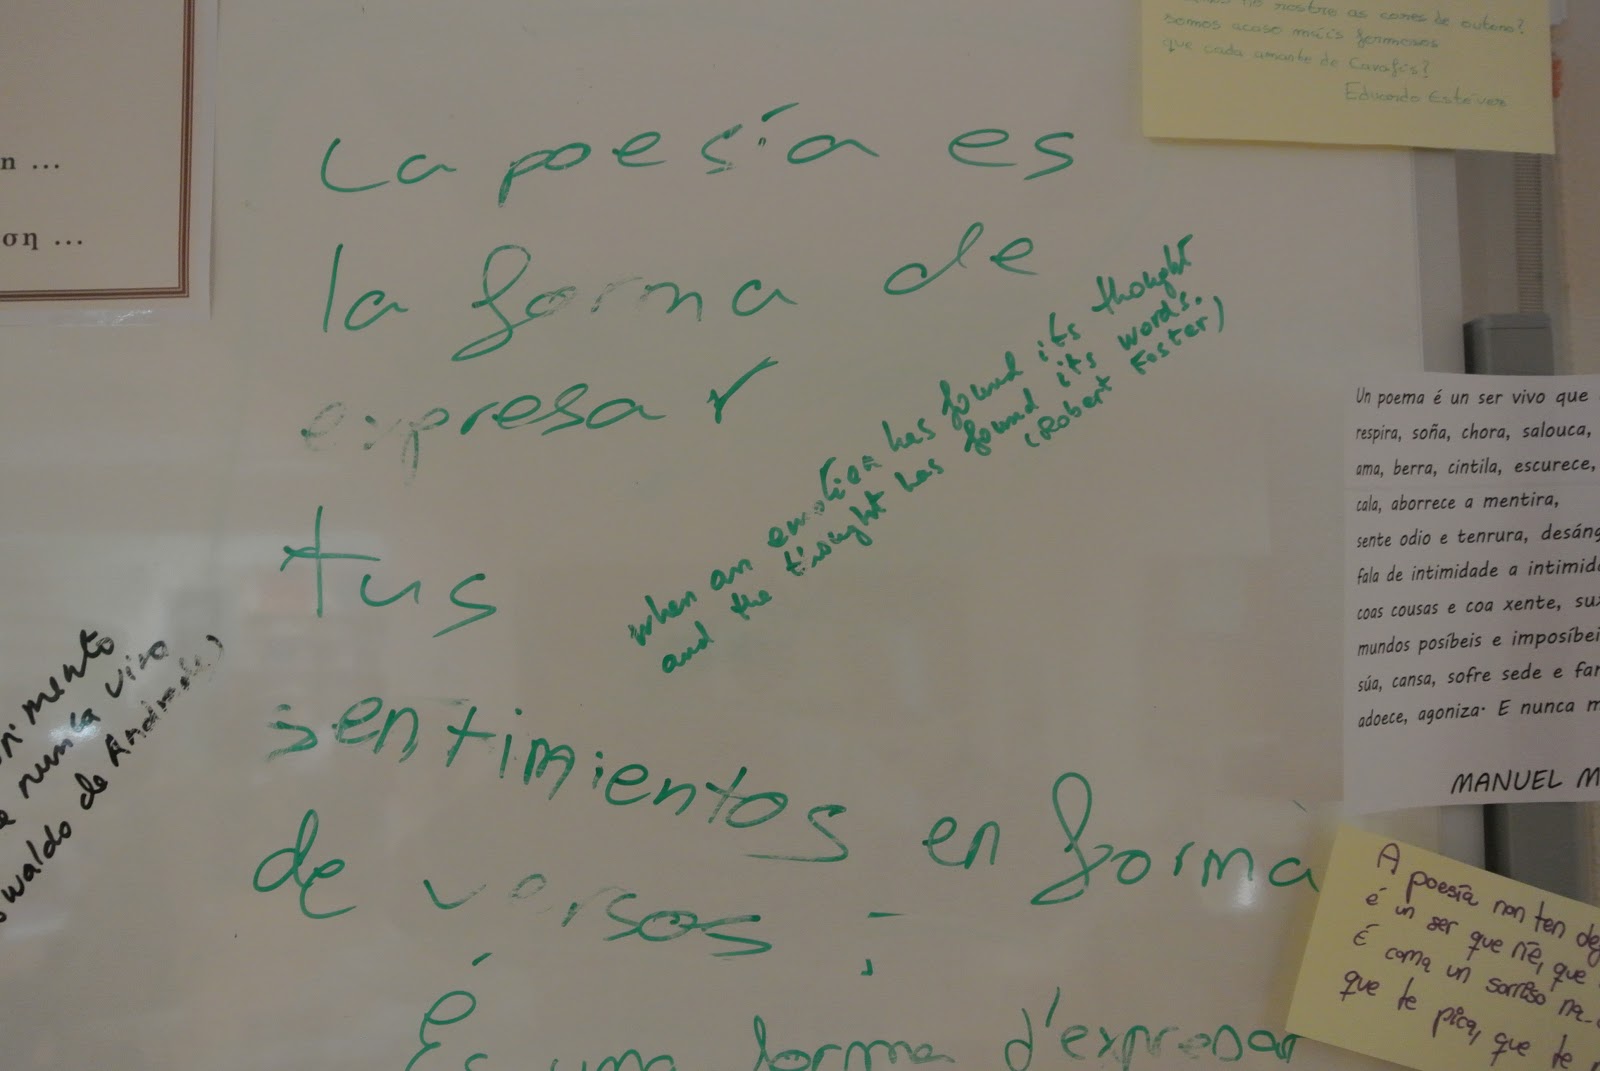 n ...
ση ...
no rostro as cores de outono?
somos acaso máis fermosos
que cada amante de Cavafis?
Eduardo Estévez
La poesía es
la forma de
expresar
tus
sentimientos en forma
de versos;
É
Es una forma d'expresar
when an emotion has found its thought
and the thought has found its words.
(Robert Foster)
nunca vivo
waldo de Andrade)
Un poema é un ser vivo que
respira, soña, chora, salouca,
ama, berra, cintila, escurece,
cala, aborrece a mentira,
sente odio e tenrura, desáng
fala de intimidade a intimida
coas cousas e coa xente, sux
mundos posíbeis e imposíbei
súa, cansa, sofre sede e fa
adoece, agoniza. E nunca m
MANUEL M
A poesía non ten de
é un ser que ríe, que
É coma un sorriso na
que te pica, que te